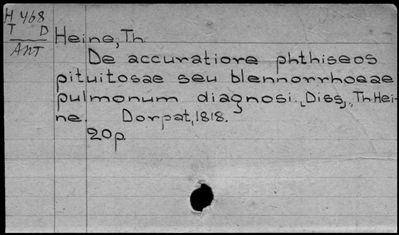 H 468
T D
Ant
Heine, Th.
De accuratiore phthiseos
pituitosae seu blennorrhoeae
pulmonum diagnosi. „Diss„. Th Hei-
ne. Dorpat, 1818.
20p.